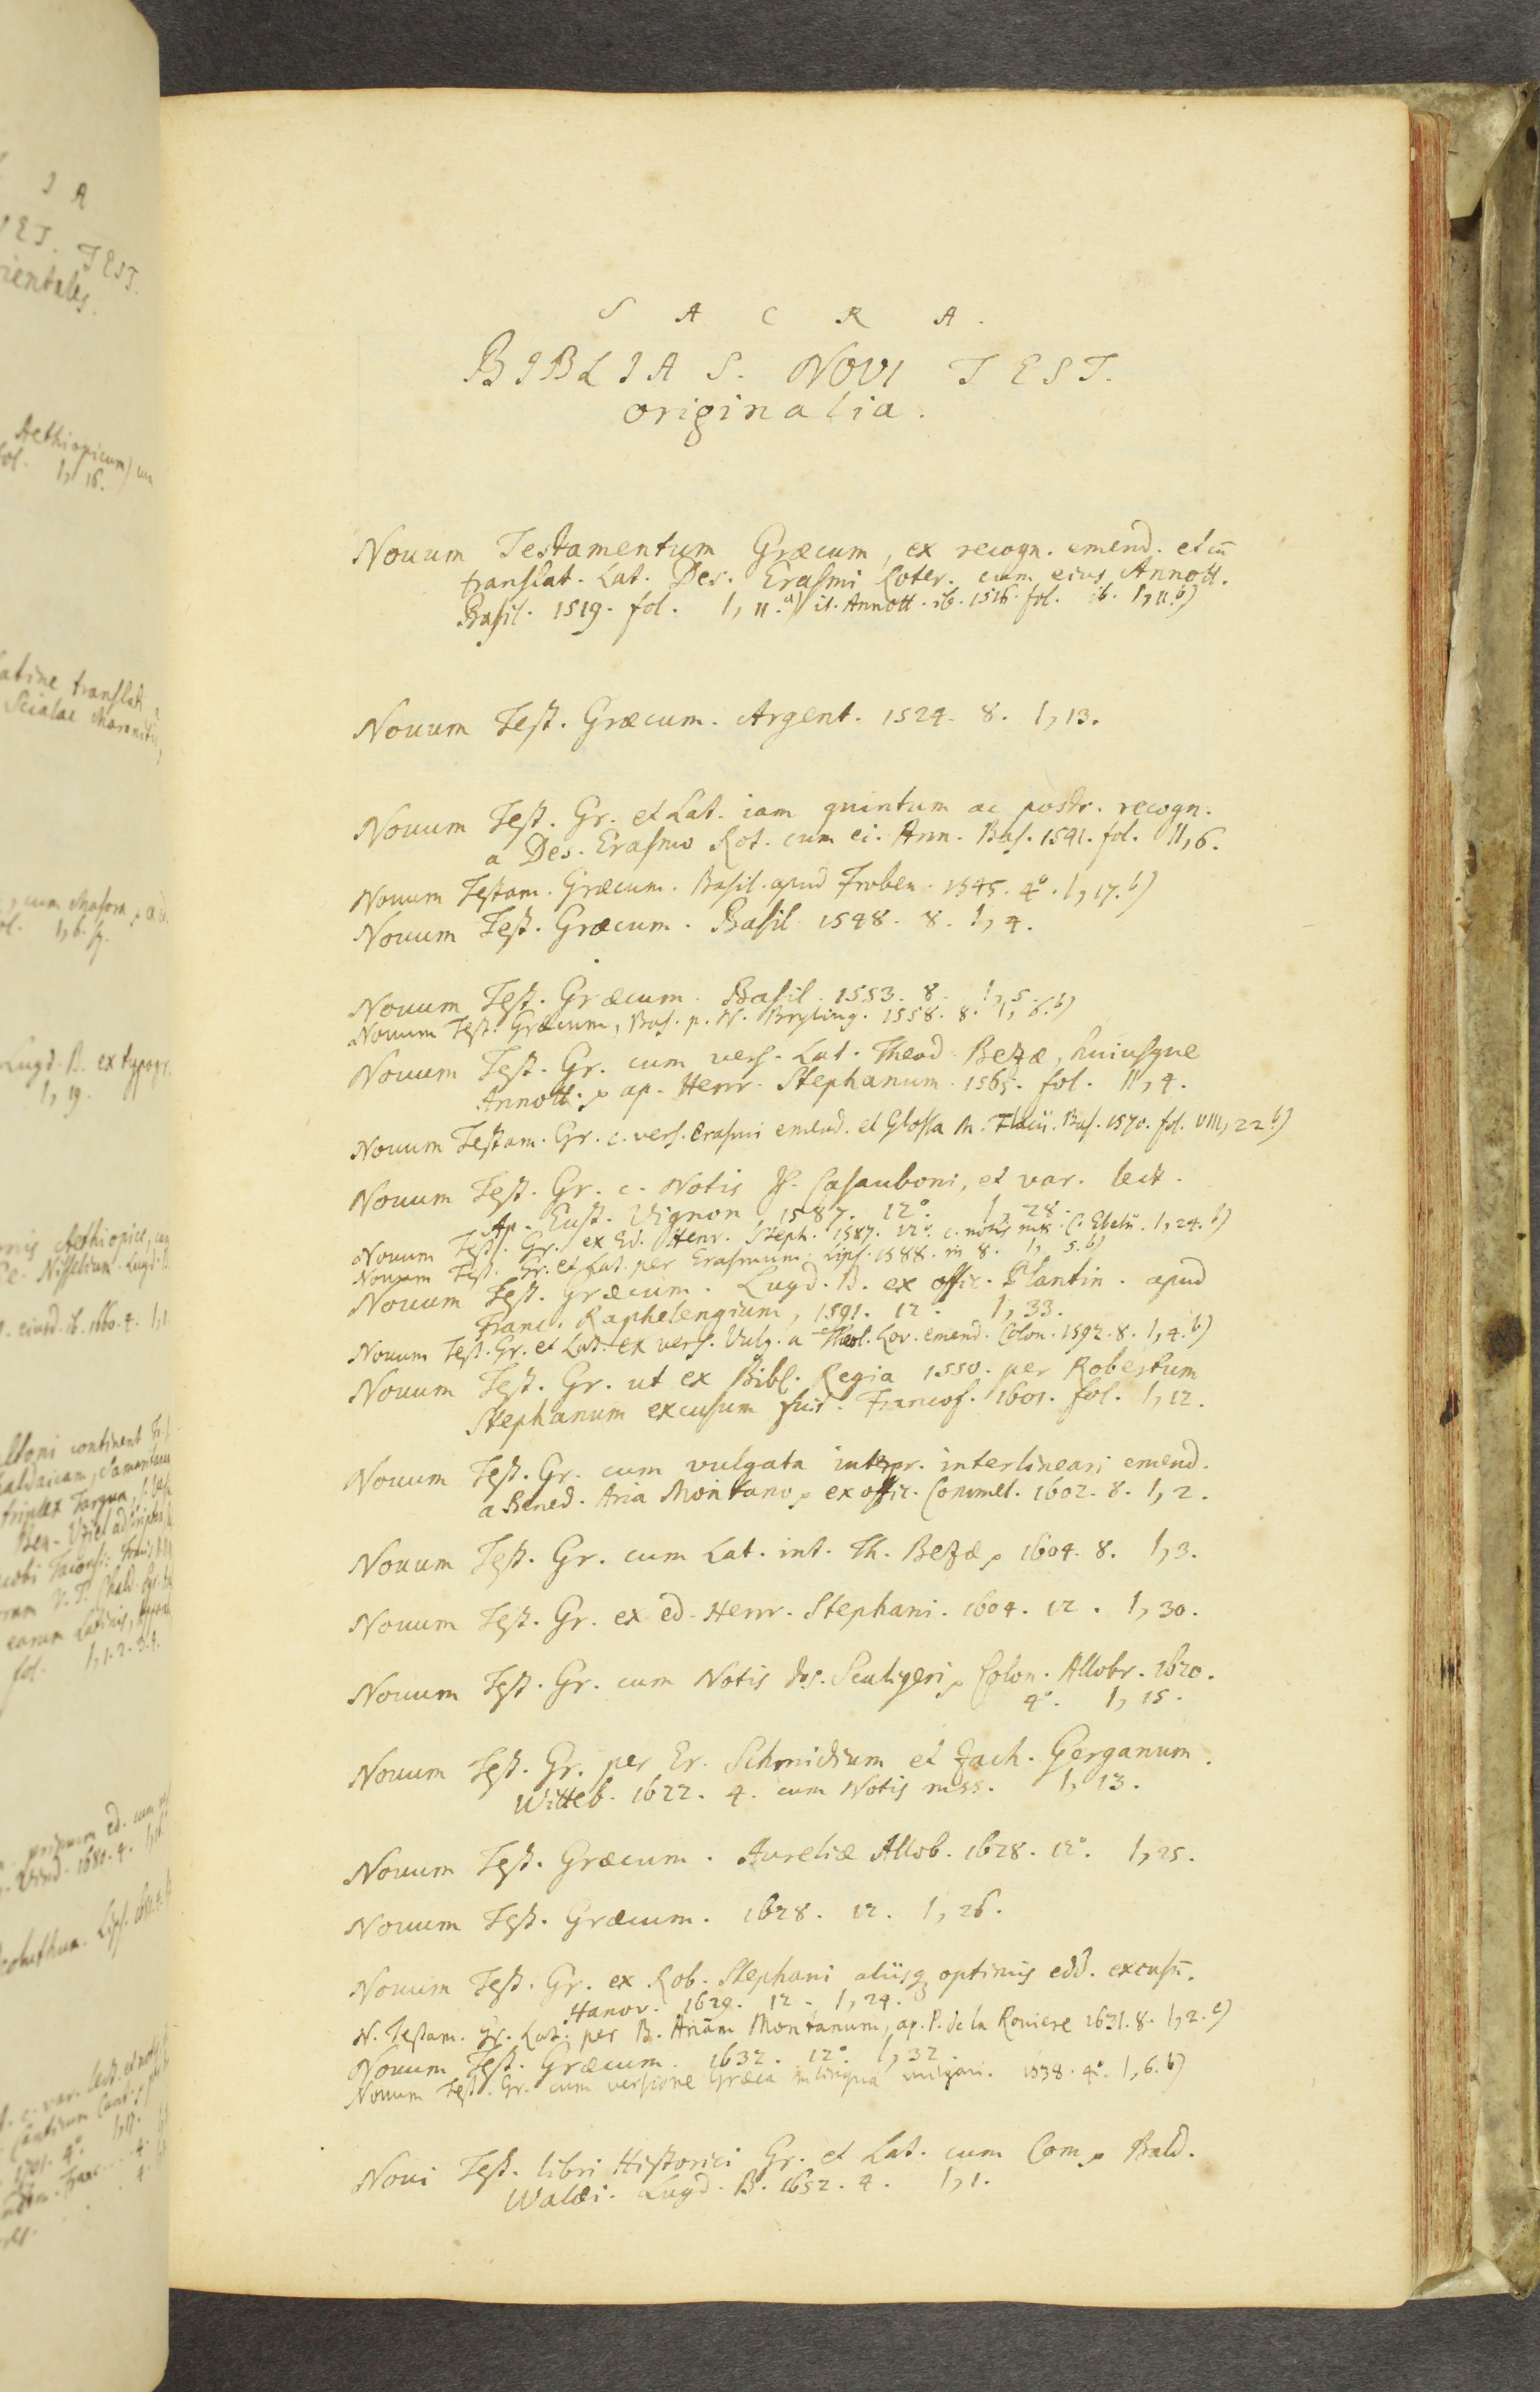 S A C R A.
BIBLIA S. NOVI TEST.
originalia.
Nouum Testamentum Græcum, ex recogn. emend. et cū
translat. Lat. Des. Erasmi Roter. cum eius Annott.
Basil. 1519. fol. I, 11.a) it. Annott. ib. 1516. fol. ib. I, 11.b)
Nouum Test. Græcum. Argent. 1524. 8. I, 13.
Nouum Test. Gr. et Lat. iam quintum ac postr. recogn.
a Des. Erasmo Rot. cum ei. Ann. Bas. 1541. fol. II, 6.
Nouum Testam. Græcum. Basil. apud Froben. 1545. 4°. I, 17.b)
Nouum Test. Græcum. Basil. 1548. 8. I, 4.
Nouum Test. Græcum. Basil. 1553. 8. I, 5.
Nouum Test. Græcum, Bas. p. N. Bryling. 1558. 8. I, 6.b)
Nouum Test. Gr. cum vers. Lat. Theod. Bezæ, huiusque
Annott. ap. Henr. Stephanum. 1565. fol. II, 4.
Nouum Testam. Gr. c. vers. Erasmi emend. et Glossa M. Flacii. Bas. 1570. fol. VIII, 22.b)
Nouum Test. Gr. c. Notis Is. Casauboni, et var. lect.
Ap. Eust. Vignon 1587. 12°. I, 28.
Nouum Test. Gr. ex Ed. Henr. Steph. 1587. 12°. c. notis mss. C. I, 24.b)
Nouum Test. Gr. et Lat. per Erasmum. Lips. 1588. in 8. I, 5.b)
Nouum Test. Græcum. Lugd. B. ex offic. Plantin. apud
Franc. Raphelengium, 1591. 12. I, 33.
Nouum Test. Gr. et Lat. ex vers. Vulg. a Theol. Lov. emend. Colon. 1592. 8. I, 4.b)
Nouum Test. Gr. ut ex Bibl. Regia 1550. per Robertum
Stephanum excusum fuit. Francof. 1601. fol. I, 12.
Nouum Test. Gr. cum vulgata interpr. interlineari emend.
a Bened. Aria Montano, ex offic. Commel. 1602. 8. I, 2.
Nouum Test. Gr. cum Lat. int. Th. Bezæ, 1604. 8. I, 3.
Nouum Test. Gr. ex ed. Henr. Stephani. 1604. 12. I, 30.
Nouum Test. Gr. cum Notis Jos. Scaligeri, Colon. Allobr. 1620.
4°. I, 15.
Nouum Test. Gr. per Er. Schmidium et Zach. Gerganum.
Witteb. 1622. 4. cum Notis mss. I, 13.
Nouum Test. Græcum. Aureliæ Allob. 1628. 12°. I, 25.
Nouum Test. Græcum. 1628. 12. I, 26.
Nouum Test. Gr. ex Rob. Stephani aliisq optimis edd. excusū.
Hanov. 1629. 12. I, 24.
N. Testam. Gr. Lat. per B. Ariam Montanum, ap. P. de la Roviere 1631. 8. I, 2.c)
Nouum Test. Græcum. 1632. 12°. I, 32.
Nouum Test. Gr. cum versione Græca in lingua vulgari. 1638. 4°. I, 6.b)
Noui Test. libri Historici Gr. et Lat. cum Com. Bald.
Walæi. Lugd. B. 1652. 4. I, 1.